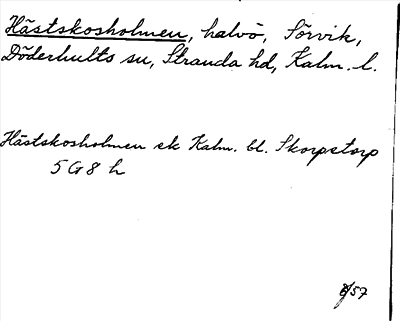 Hästskosholmen, halvö, Sörvik,
Döderhults sn, Stranda hd, Kalm. l.
Hästskosholmen ek Kalm. bl. Skorpetorp
5 G 8 h
57